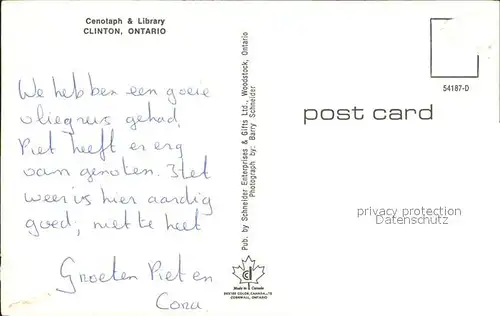 Cenotaph & Library
CLINTON, ONTARIO
We hebben een goeie
vliegreis gehad,
Piet heeft er erg
van genoten. Het
weer is hier aardig
goed, niet te heet
Groeten Piet en
Cora
Pub. by Schneider Enterprises & Gifts Ltd., Woodstock, Ontario
Photograph by: Barry Schneider
Made in Canada
DEXTER COLOR CANADA LTD.
CORNWALL, ONTARIO
54187-D
post card
privacy protection
Datenschutz